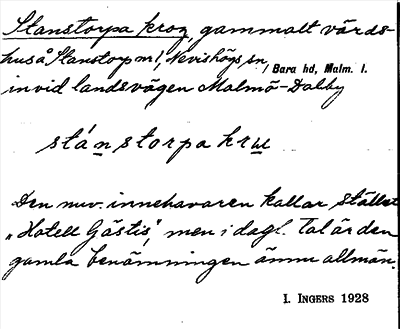 Stanstorpa krog, gammalt värds-
hus å Stanstorp nr 1, Nevishögs sn, Bara hd, Malm. l.
invid landsvägen Malmö-Dalby
stánstorpa kru
Den nuv. innehavaren kallar stället
"Hotell Gästis", men i dagl. tal är den
gamla benämningen ännu allmän.
I. INGERS 1928